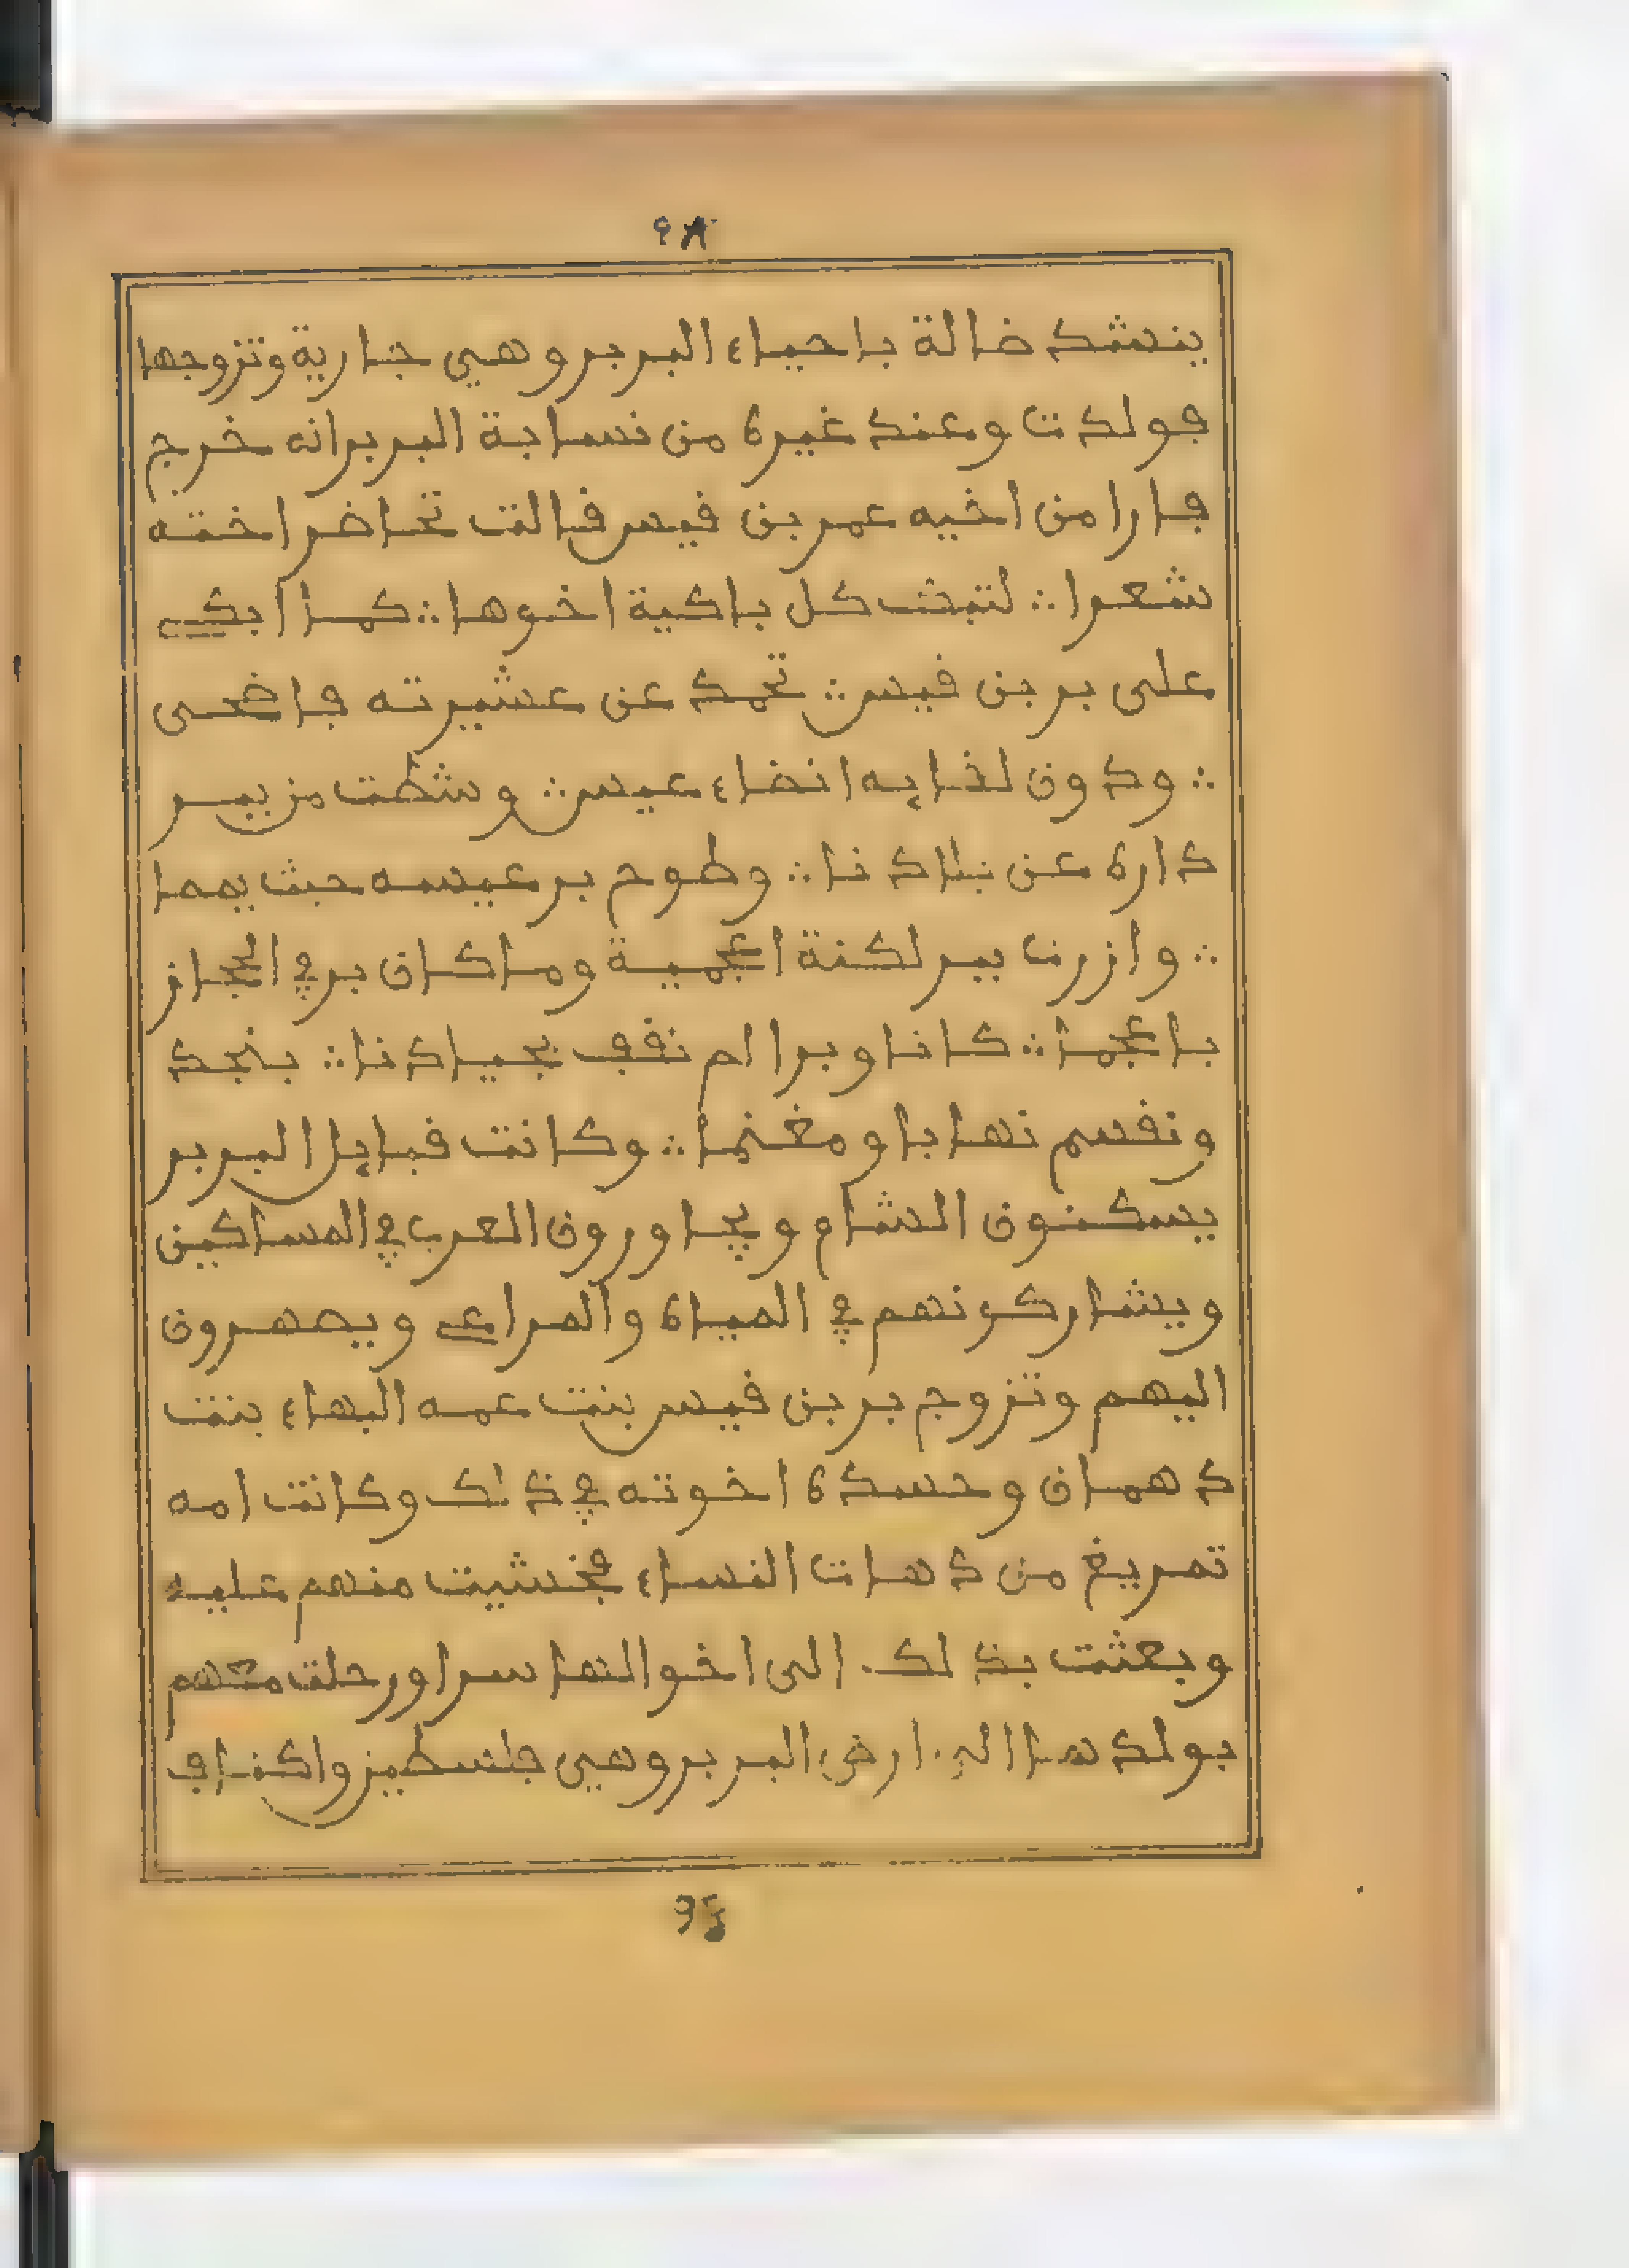 ٩٨
ينشد ضالة باحياء البربر وهي جارية وتزوجها
فولدت وعند غيره من نسابة البربر انه خرج
فارا من اخيه عمر بن قيس فقالت تماضر اخته
شعرا ؞ لتبك كل باكية اخوها ؞ كما ابكي
على بر بن قيس ؞ تحمد عن عشيرته فاضحى
؞ ودون لقايه انضاء عيس ؞ وشطت ببر
داره عن بلادنا ؞ وطوح بر عيسه حيث يمما
؞ وازرت ببر لكنة اعجمية وما كان بر في الحجاز
باعجما ؞ كانا وبرا لم نقف بجيادنا ؞ بنجد
ونقسم نهابا ومغنما ؞ وكانت قبايل البربر
يسكنون الشام ويجاورون العرب في المساكين
ويشاركونهم في المياه والمراعي ويصهرون
اليهم وتزوج بر بن قيس بنت عمه البهاء بنت
دهمان وحسده اخوته في ذلك وكانت امه
تمريغ من دهات النساء فخشيت منهم عليه
وبعثت بذلك الى اخوالها سرا ورحلت معهم
بولدها الى ارض البربر وهي فلسطين واكناف